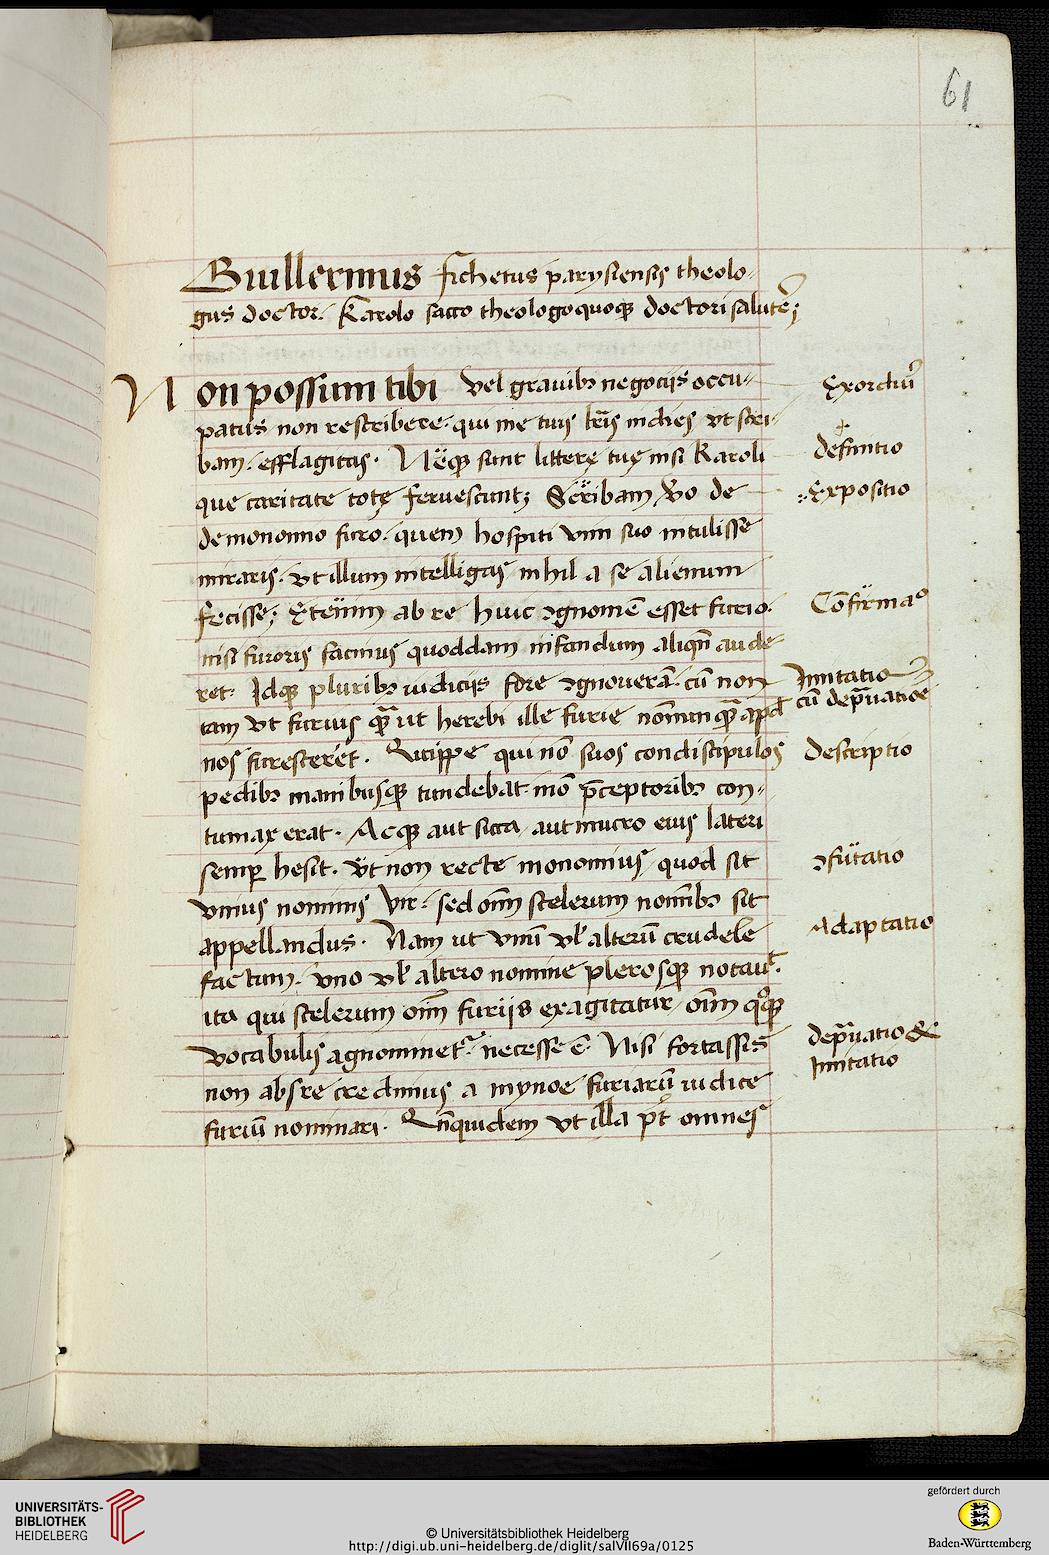 61
Guillermus fichetus parysiensis theolo-
gus doctor. Karolo sacco theologo quoqꝫ doctori salutē;
Non possum tibi vel gravibꝫ negocijs occu-
patus non rescribere. qui me tuis lrīs indies vt scri-
bam. efflagitas. Neqꝫ sunt litterę tuę nisi Karoli
que caritate totę fervescunt; Scribam vo de
demonomo furo. quem hospiti vim suo intulisse
miraris. vt illum intelligas nihil a se alienum
fecisse; Etenim ab re huic ɔgnomē esset furio.
nisi furoris facinus quoddam infandum aliqn̄ aude-
ret. Idqꝫ pluribꝫ iudicijs fore ɔgnouerā. cū non
tam vt furius qͣ̄ ut herebi ille furie nōmin qͣ̄ apd
nos furesceret. Quippe qui nō suos condiscipulos
pedibꝫ manibusqꝫ tundebat. mō p̄ceptoribꝫ con-
tumax erat. Acqꝫ aut sicca aut mucro eius lateri
semꝑ hesit. vt non recte monomius quod sit
vnius nominis vir. sed oīm scelerum nomībꝫ sit
appellandus. Nam ut vnū vl̓ alterū crudele
factum. vno vl̓ altero nomine plerosqꝫ notaut.
ita qui scelerum oīm furijs exagitatur oīm qͦqꝫ
vocabulis agnominetͬ. necesse ē. Nisi fortassis
non abs re credimus a mynoe furiarū iudice
furiū nominari. Qn̄quidem vt illa pt omnes
Exordiū
defunctio
Expositio
Cōfirmaͦ
Imitatio
cū dep̄uatiōe
descriptio
ɔfutatio
Adaptatio
dep̄uatio &
Imitatio
UNIVERSITÄTS-
BIBLIOTHEK
HEIDELBERG
© Universitätsbibliothek Heidelberg
http://digi.ub.uni-heidelberg.de/diglit/salVII69a/0125
gefördert durch
Baden-Württemberg